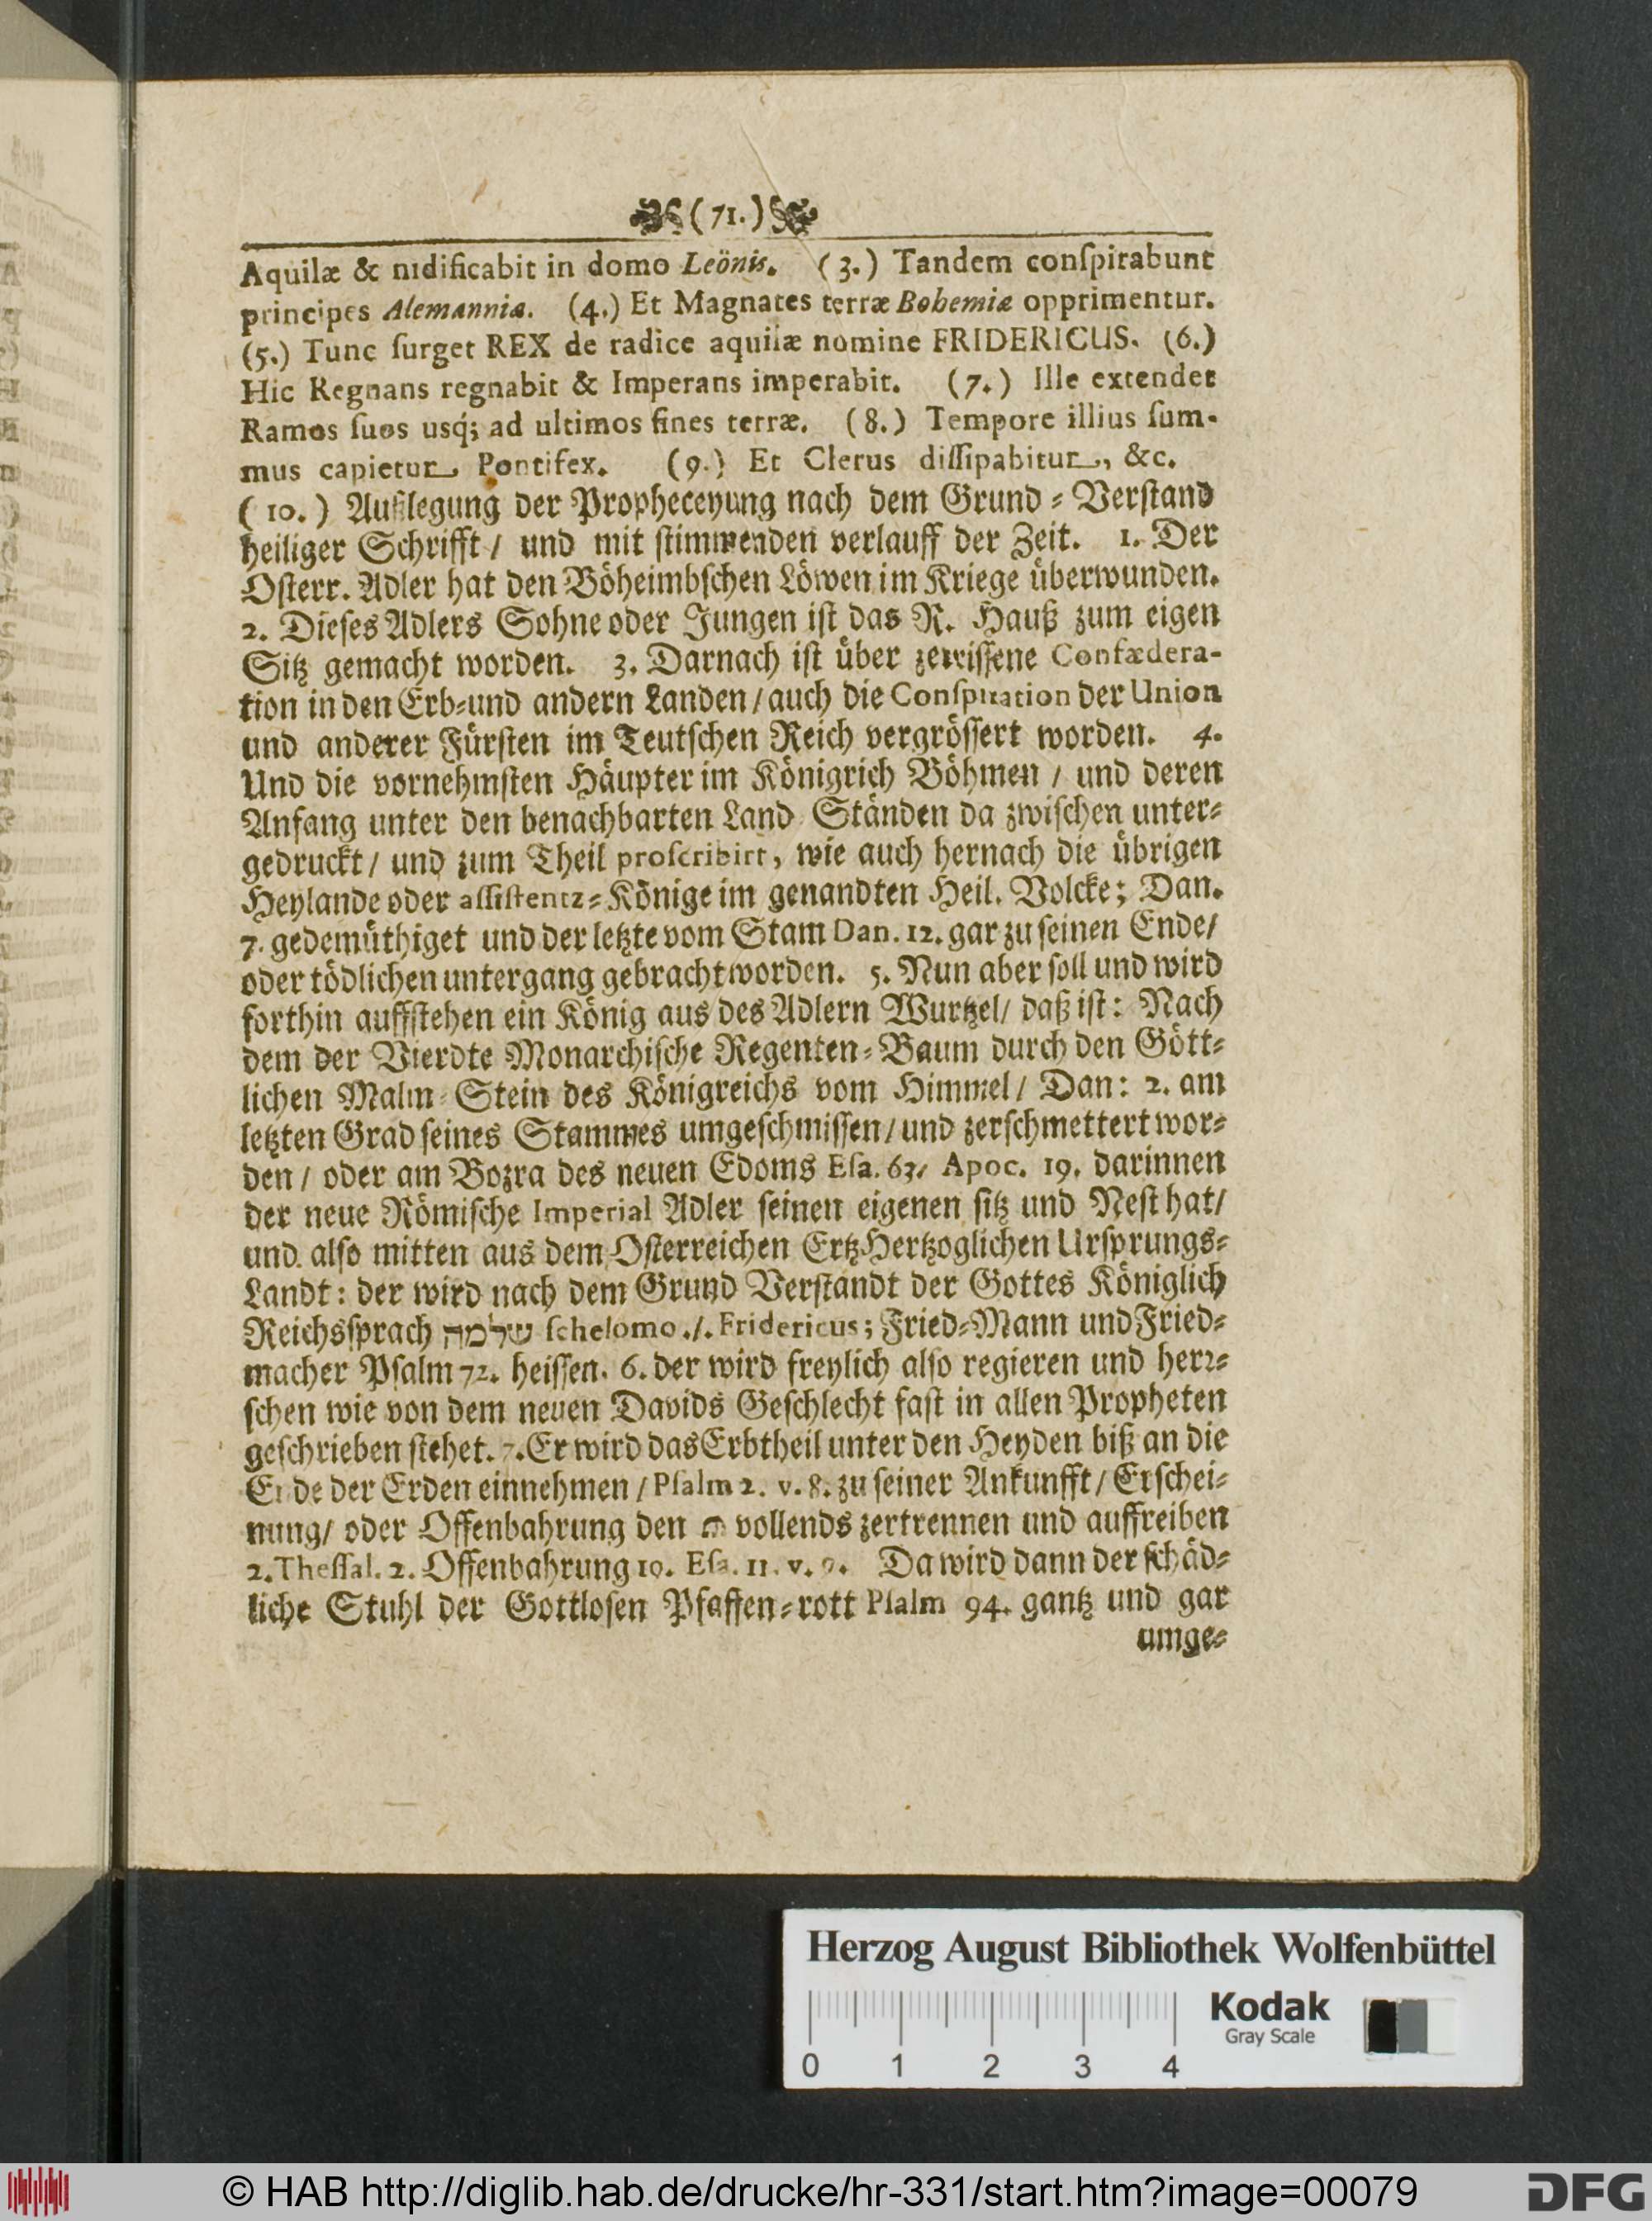 (71.)
Aquilæ & nidificabit in domo Leönis. (3.) Tandem conſpirabunt
principes Alemanniæ. (4.) Et Magnates terræ Bohemiæ opprimentur.
(5.) Tunc ſurget REX de radice aquilæ nomine FRIDERICUS. (6.)
Hic Regnans regnabit & Imperans imperabit. (7.) Ille extendet
Ramos ſuos usq́; ad ultimos fines terræ. (8.) Tempore illius ſum-
mus capietur Pontifex. (9.) Et Clerus diſſipabitur, &c.
(10.) Außlegung der Propheceyung nach dem Grund⸗Verſtand
heiliger Schrifft / und mit ſtimmenden verlauff der Zeit. 1. Der
Oſterr. Adler hat den Böheimbſchen Löwen im Kriege überwunden.
2. Dieſes Adlers Sohne oder Jungen iſt das R. Hauß zum eigen
Sitz gemacht worden. 3. Darnach iſt über zerriſſene Confædera-
tion in den Erb⸗und andern Landen / auch die Conſpiration der Union
und anderer Fürſten im Teutſchen Reich vergröſſert worden. 4.
Und die vornehmſten Häupter im Königrich Böhmen / und deren
Anfang unter den benachbarten Land Ständen da zwiſchen unter⸗
gedruckt / und zum Theil proſcribirt, wie auch hernach die übrigen
Heylande oder aſſiſtentz⸗Könige im genandten Heil. Volcke; Dan.
7. gedemüthiget und der letzte vom Stam Dan. 12. gar zu ſeinen Ende/
oder tödlichen untergang gebracht worden. 5. Nun aber ſoll und wird
forthin auffſtehen ein König aus des Adlern Wurtzel/ daß iſt: Nach
dem der Vierdte Monarchiſche Regenten⸗Baum durch den Gött⸗
lichen Malm⸗Stein des Königreichs vom Himmel/ Dan: 2. am
letzten Grad ſeines Stammes umgeſchmiſſen/ und zerſchmettert wor⸗
den / oder am Bozra des neuen Edoms Eſa. 63, Apoc. 19. darinnen
der neue Römiſche Imperial Adler ſeinen eigenen ſitz und Neſt hat/
und also mitten aus dem Oſterreichen ErtzHertzoglichen Urſprungs⸗
Landt: der wird nach dem Grund Verſtandt der Gottes Königlich
Reichsſprach שלמה ſchelomo ./. Fridericus; Fried⸗Mann und Fried⸗
macher Pſalm 72. heiſſen. 6. der wird freylich alſo regieren und herr⸗
ſchen wie von dem neuen Davids Geſchlecht faſt in allen Propheten
geſchrieben ſtehet. 7. Er wird das Erbtheil unter den Heyden biß an die
Ende der Erden einnehmen / Pſalm 2. v. 8. zu ſeiner Ankunfft / Erſchei⸗
nung/ oder Offenbahrung den vollends zertrennen und auffreiben
2. Theſſal. 2. Offenbahrung 19. Eſa. 11. v. Da wird dann der ſchäd⸗
liche Stuhl der Gottloſen Pfaffen⸗rott Pſalm 94. gantz und gar
umge⸗
Herzog August Bibliothek Wolfenbüttel
Kodak
Gray Scale
0 1 2 3 4
© HAB http://diglib.hab.de/drucke/hr-331/start.htm?image=00079
DFG